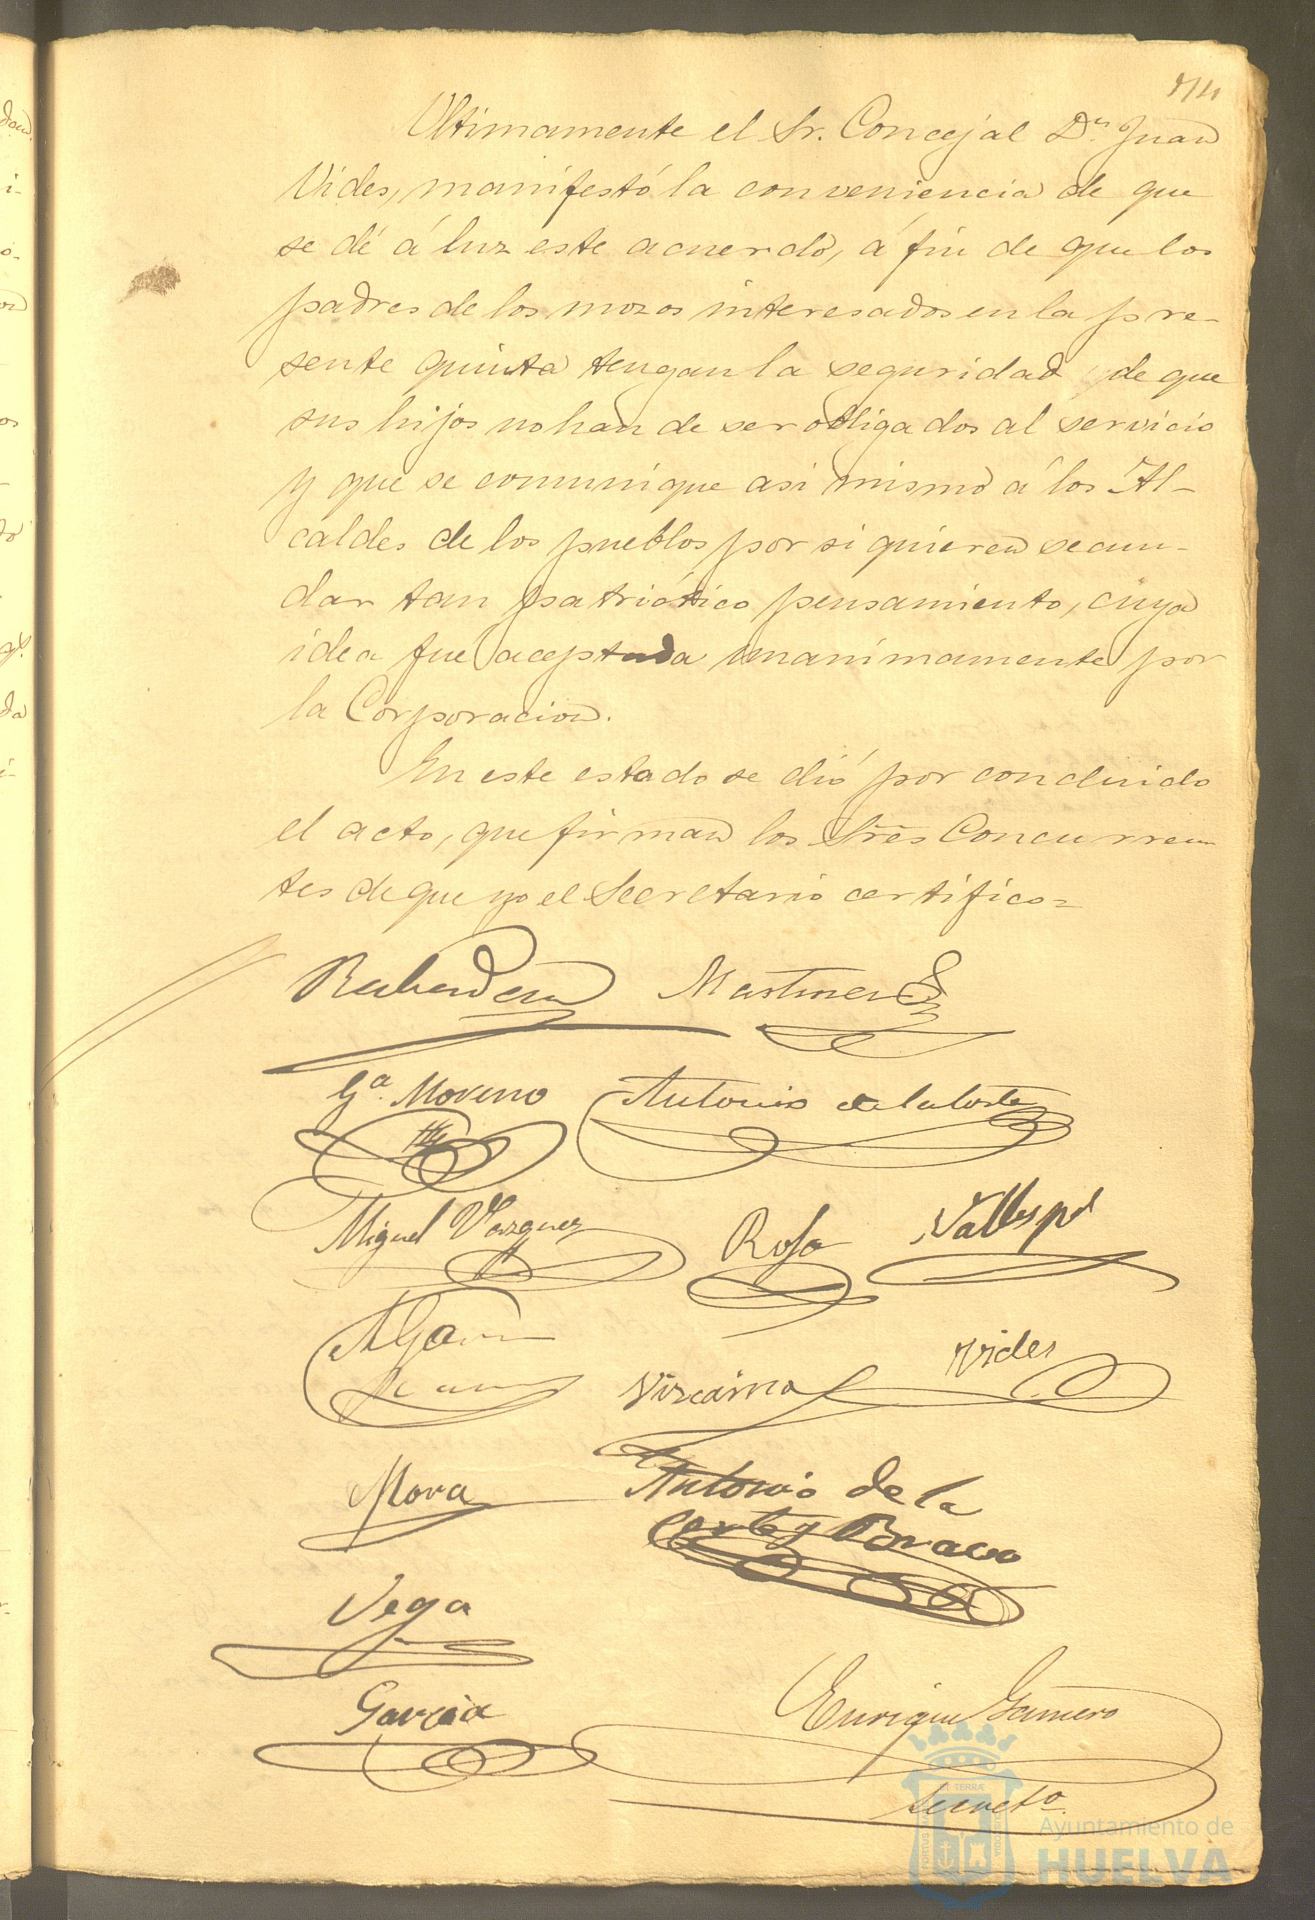 Ultimamente el Sr. Concejal Dn. Juan
Vides, manifestó la conveniencia de que
se dé á luz este acuerdo, á fin de que los
padres de los mozos interesados en la pre-
sente quinta tengan la seguridad de que
sus hijos no han de ser obligados al servicio
y que se comunique asi mismo á los Al-
caldes de los pueblos por si quieren secun-
dar tan patriótico pensamiento, cuya
idea fue aceptada unanimamente por
la Corporacion.
En este estado se dió por concluido
el acto, que firman los Sres Concurren-
tes de que yo el Secretario certifico=
Martinez
Ga. Moreno Antonio de la Corte
Miguel Vazquez Rofa Vallespi
Vizcaino Vides
Mora Antonio de la
Corte y Bravo
Vega
Garcia
Enrique Gamero
Secreto.
ET TERRÆ
Ayuntamiento de
HUELVA